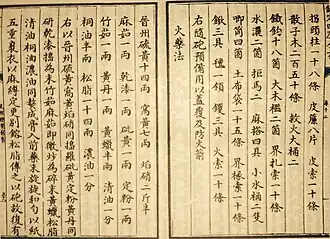 拐頭柱一十八條 皮簾八片 皮索一十條
散子木二百五十條 救火大桶二
鐵鉤十八箇 大木檻二箇 界扎索一十條
水濃二箇 拒馬二 麻搭四具 小水桶二隻
唧筒四箇 土布袋一十五條 界椽索一十條
鍬三具 氈一領 钁三具 火索一十條
右隨砲預備用以蓋覆及防火箭
火藥法
晉州硫黃十四兩 窩黃七兩 焰硝二斤半
麻茹一兩 乾漆一兩 砒黃一兩 定粉一兩
竹茹一兩 黃丹一兩 黃蠟半兩 清油一分
桐油半兩 松脂一十四兩 濃油一分
右以晉州硫黃窩黃焰硝同擣羅砒黃定粉黃丹同
研乾漆擣為末竹茹麻茹即微炒為碎末黃蠟松脂
清油桐油濃油同熬成膏入前藥末旋旋和勻以紙
五重裹衣以麻縛定更別鎔松脂傅之以砲放復有